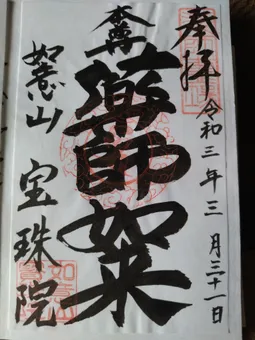 奉拝
令和三年三月三十一日
本尊
薬師如来
如意山
宝珠院